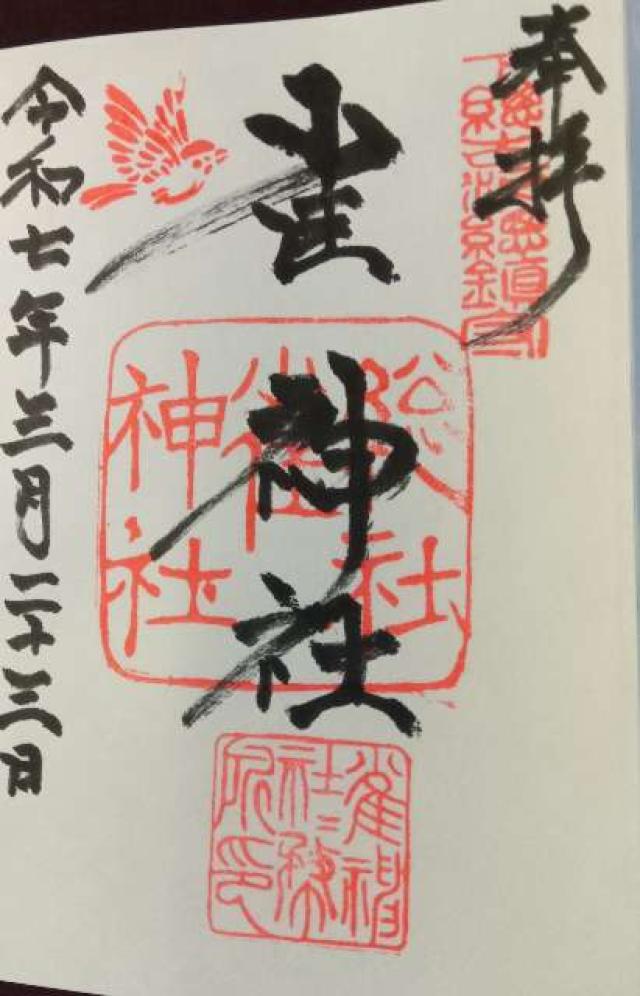 奉拝
雀神社
令和七年三月二十三日
社
雀
神社
雀神
社〻務
所印